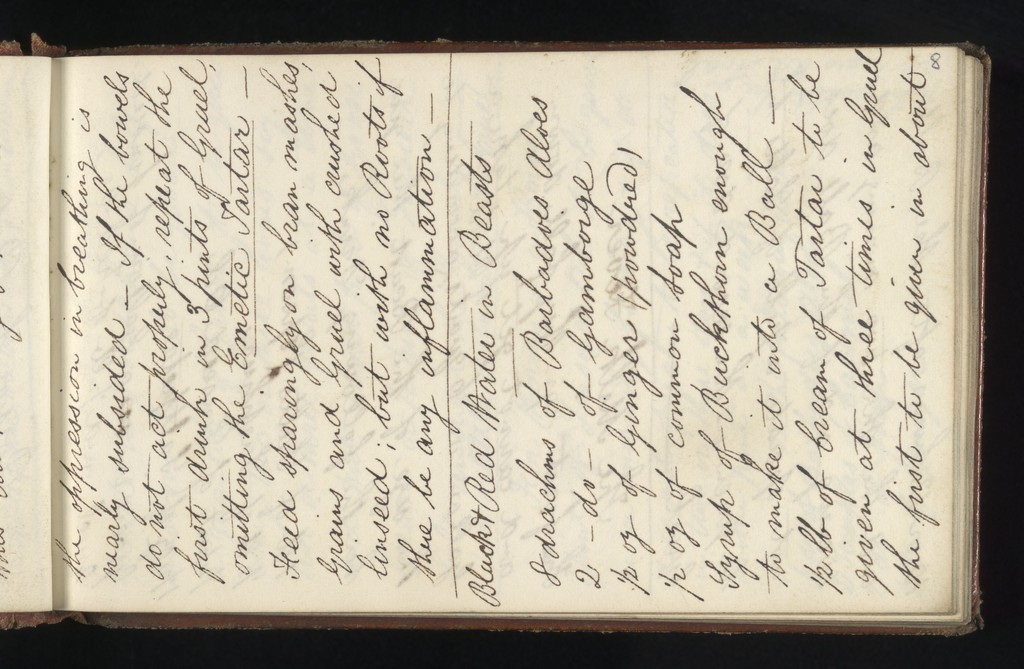 8
the oppression in breathing is
nearly subsided – If the bowels
do not act properly; repeat the
first drench in 3 pints of Gruel,
omitting the Emetic Tartar –
Feed sparingly on bran mashes,
Grains and Gruel with crushed
linseed; but with no Roots if
there be any inflammation –
Black & Red Water in Beasts
8 drachms of Barbadoes Aloes
2 – do – of Gamboige
½ oz of Ginger (powdered)
½ oz of common soap
Syrup of Buckthorn enough
to make it into a Ball –
½ lb of Cream of Tartar to be
given at three times in Gruel
the first to be given in about